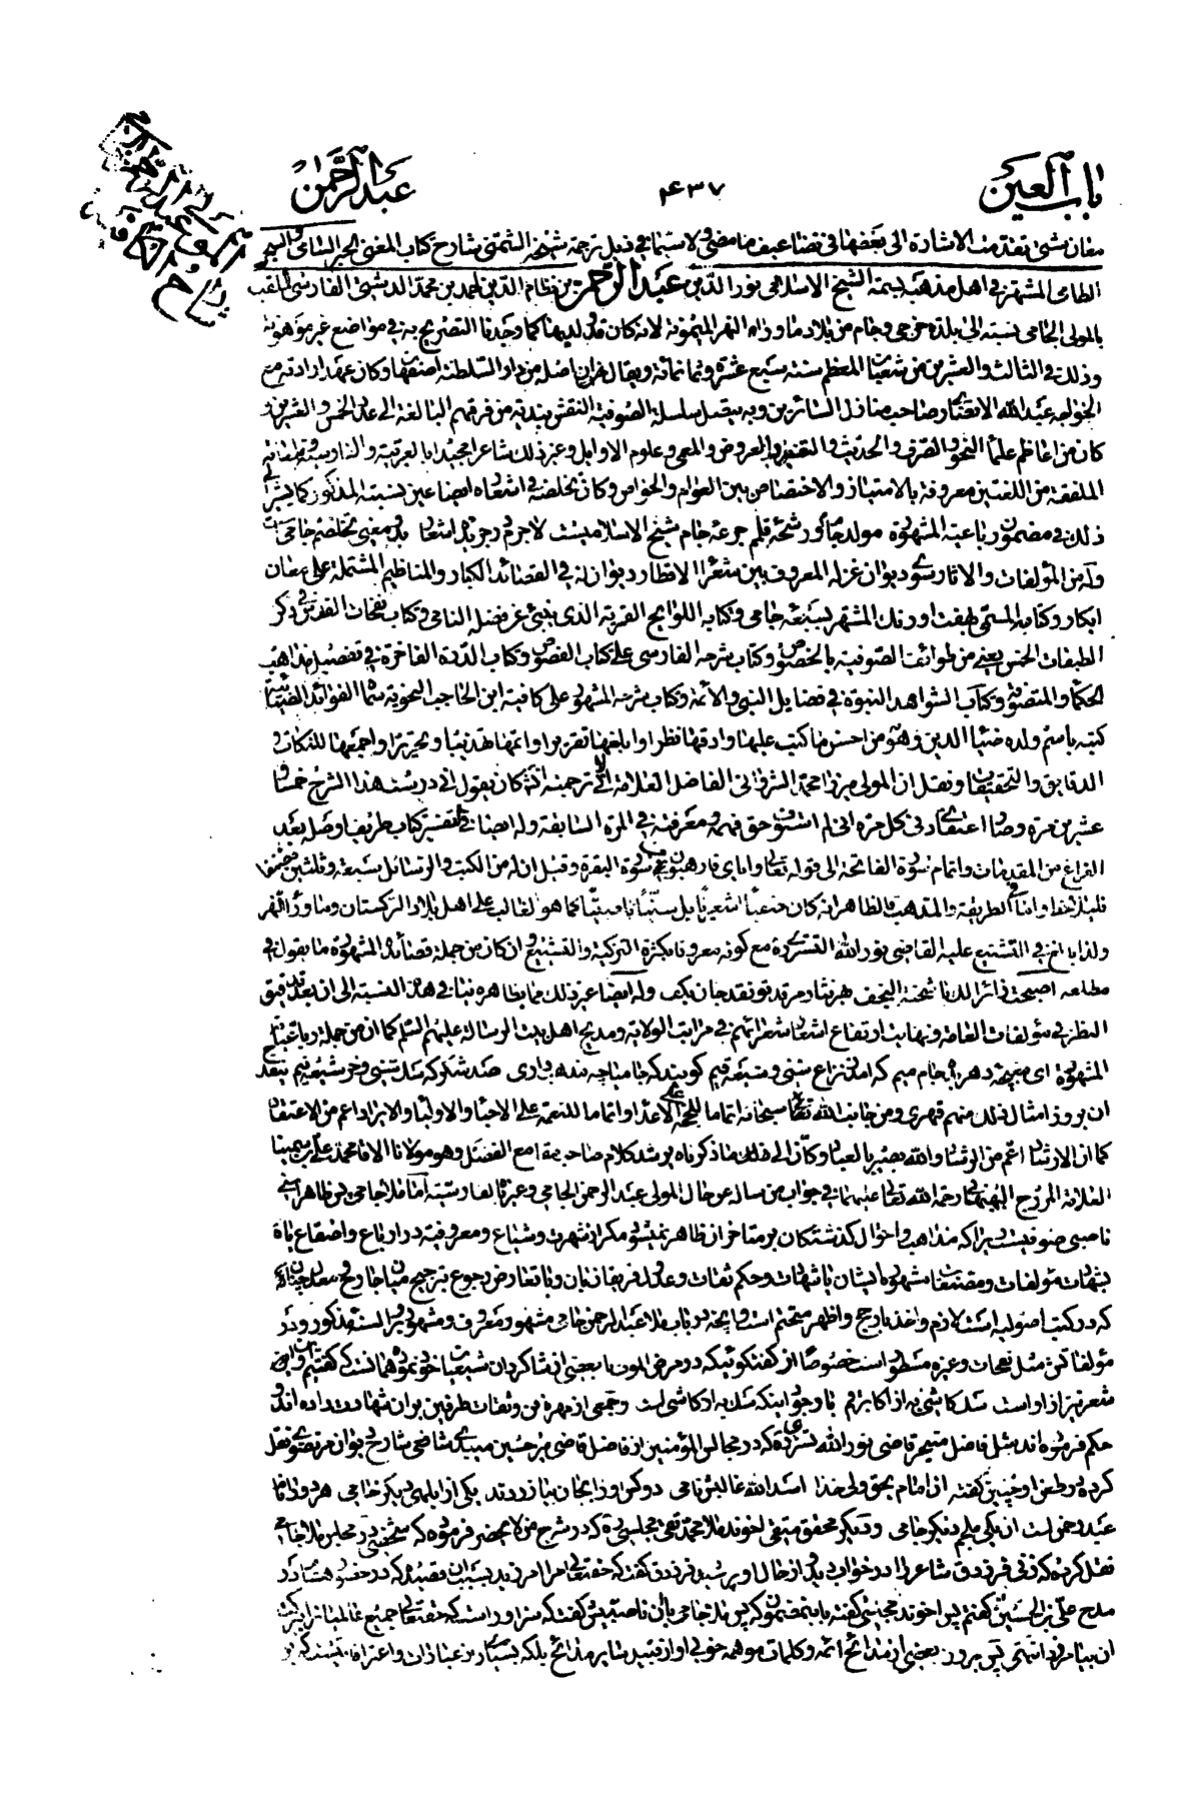 باب العين ۴۳۷ عبد الرحمن
المولى عبد الرحمن
شارح الكافية
معان شتى تقدمت الاشارة الى بعضها في تضاعيف ما مضى ولا سيما في ذيل ترجمة شيخه الشمني شارح كتاب المغني
الطائي المشتهر في اهل مذهبه بسمة الشيخ الاسلامي نور الدين عبد الرحمن بن نظام الدين احمد بن محمد الدشتي الفارسي الملقب
بالمولى الجامي نسبته الى بلدة خرجي وجام من بلاد ماوراء النهر الميمونة لانه كان قد ولد بها كما وجدنا التصريح به في مواضع غير موهونة
وذلك في الثالث والعشرين من شعبان المعظم سنة سبع عشرة وثمانمائة ويقال فمران اصله من دار السلطنة اصفهان وكان عهد ارادته مع
الخواجه عبد الله الانصاري صاحب منازل السائرين وبه يتصل سلسلة الصوفية النقش بندية من فرقهم البالغة الى عدد الخمس والعشرين و
كان من اعاظم علماء النحو والصرف والحديث والتفسير والعروض والمعمى وعلوم الاوايل وغير ذلك شاعرا مجيدا بالعربية والفارسية وقطعاته
الملفقة من اللغتين معروفة بالامتياز والاختصاص بين العوام والخواص وكان تخلصه في اشعاره ايضا عين نسبته المذكور كما يشير الى
ذلك في مضمون رباعيته المشهورة مولدم جام ورشحه قلم جرعه جام شيخ الاسلاميست لاجرم در جريده اشعار بدو معنى تخلصم جاميست
وله من المؤلفات والآثار سوى ديوان غزله المعروف بين شعراء الاقطار ديوان له في القصائد الكبار والمناظيم المشتملة على معان
ابكار وكتابه المسمى بهفت اورنك المشتهر بسبعه جامى وكتابه اللوايح القريه الذى ينبئ عن فضله النامى وكتاب نفحات القدس في ذكر
الطبقات الخمس يعني من طوائف الصوفية بالخصوص وكتاب شرحه الفارسي على كتاب الفصوص وكتاب الدرة الفاخرة في تفصيل مذاهب
الحكماء والمتصوفة وكتاب الشواهد النبوة في فضايل النبي والائمة وكتاب شرحه المشهور على كافية ابن الحاجب النحوية سماه الفوائد الضيائية
كتبه باسم ولده ضياء الدين وهو من احسن ما كتب عليها وادقها نظرا وابلغها تقريرا واتمها تهذيبا وتحريرا واجمعها للنكات و
الدقايق والتحقيقات ونقل ان المولى ميرزا محمد الشرواني الفاضل العلامة الآتي ترجمته كان يقول اني درست هذا الشرح خمسا و
عشرين مرة وصار اعتقادي في كل مرة اني لم استوف حق فهمه ومعرفته في المرة السابقة وله ايضا في التفسير كتاب طريف وصل بعد
الفراغ من المقدمات واتمام سورة الفاتحة الى قوله تعالى واياي فارهبون من سورة البقرة وقيل ان له من الكتب والرسائل سبعة وثلثين مصنفا
فليلاحظ واما في الطريقة والمذهب فالظاهر انه كان حنفيا اشعريا بل سنيا ناصبيا كما هو الغالب على اهل بلاد التركستان وماوراء النهر
ولذا بالغ في التشنيع عليه القاضي نور الله التستري مع كونه معروفا بكثرة التزكية والتشييع وان كان من جملة قصائده المشهورة ما يقول في
مطلعه اصبحت زائرا لك يا شحنة النجف بهر نثار مرقد تو نقد جان بكف وله ايضا غير ذلك مما بظاهره ينافي هذه النسبة الى ان بعد تدقيق
النظر في مؤلفات العامة ونهايت ارتفاع اشعار شعرائهم في مراتب الولاية ومديح اهل بيت الرسالة عليهم السلام كما ان من جملة رباعياته
المشهورة اى مغبچه دهر بده جام ميم كامد ز نزاع سنى وشيعه قيم گويند كه جاميا چه مذهب دارى صد شكر كه سك سنى وخر شيعه نيم يبعد
ان بروز امثال ذلك منهم قهرى ومن جانب الله تعالى سبحانه اتماما للحجة على الاعداء واتماما للنعمة على الاحباء والاولياء والابراد اعم من الاعتقاد
كما ان الارشاد اعم من الرشاد والله بصير بالعباد وكان الى ذلك ما ذكرناه يرشد كلام صاحب مقامع الفضل وهو مولانا الاقا محمد علي بن سمينا
العلامة المروج البهبهاني رحمة الله تعالى عليهما في جواب من ساله عن حال المولى عبد الرحمن الجامي وغيره بالفارسية اما ملا جامى پس ظاهر اينست
ناصبى صوفيست زيرا كه مذاهب واحوال گذشتگان بر متاخران ظاهر نميشود مگر از شهرت وشياع ومعروفيت در ارباع واصقاع يا به
شهادت مؤلفات ومصنفات مشهوره ايشان يا شهادت وحكم ثقات وعدول فريقان
كه در كتب اصوليه است لازم واخذ بارجح واظهر متحتم است وآنچه در باب ملا عبد الرحمن جامى مشهور ومعروف ومشهور بر السنه مذكور ودر
مؤلفاتش مثل نفحات وغيره مسطور است خصوصا از گفتگوئيكه در مرض الموت با بعضى از شاگردان شيعيان خود نموده
شعر نيز از اوست سك كاشى به از اكابر قم با وجود اينكه سك به از كاشى است وجمعى از مهره فن وثقات طرفين بر آن شهادت داده اند و
حكم فرموده اند مثل فاضل متبحر قاضى نور الله تستري كه در مجالس المؤمنين از فاضل قاضى مير حسين ميبدى شافعى شارح ديوان مرتضوى نقل
كرده در طعن او چنين گفته آن امام بحق ولى خدا اسد الله غالبش نامى دو كس او را بجان بيازردند يكى از ابلهى ديگر خامى هر دو را نام
عبد رحمن است آن يكى ملجم دگر جامى وديگر محقق متقى اخوند ملا محمد تقى مجلسى كه در شرح من لا يحضر فرموده كه شخصى در مجلس ملا جامى
نقل كرده كه زنى فرزدق شاعر را در خواب ديد از حال او پرسيد فرزدق گفت كه حقتعالى مرا آمرزيد بسبب آن قصيده كه در حضور هشام در
مدح على بن الحسين گفتم پس اخوند مجلسى گفته باين مضمون كه پس ملا جامى با آن ناصبيتش گفت كه سزاوار است كه حقتعالى جميع عالميان را ببركت
آن بيامرزد انتهى پس بروز بعضى از مدائح ائمه وكلمات موهمه خوبى او از قبيل ساير مدائح بلكه بسيارى از عبارات واعترافات